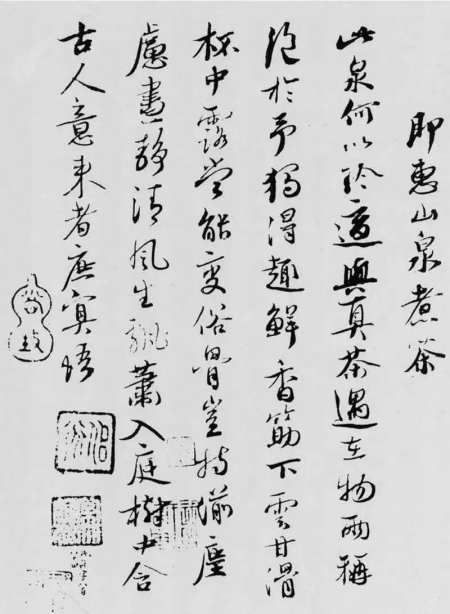 即惠山泉煮茶
此泉何以珍適與真茶遇在物兩稱
絕於予獨得趣鮮香筯下雲甘滑
杯中露當能變俗骨豈特湔塵
慮晝靜清風生飄蕭入庭樹中含
古人意来者庶冥悟